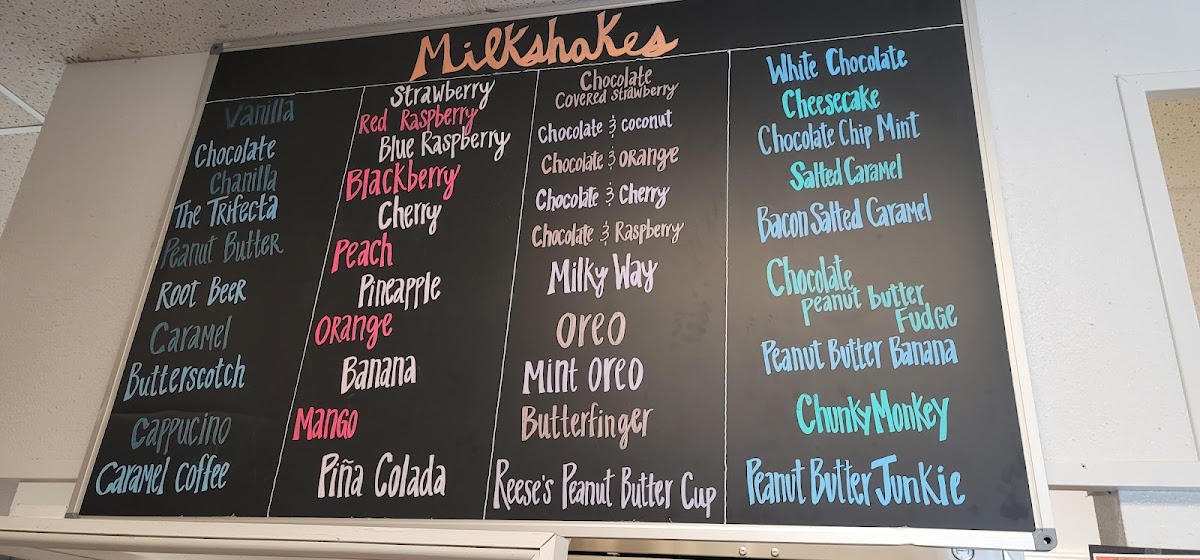 Milkshakes
Vanilla
Chocolate
Chanilla
The Trifecta
Peanut Butter
Root Beer
Caramel
Butterscotch
Cappucino
Caramel Coffee
Strawberry
Red Raspberry
Blue Raspberry
Blackberry
Cherry
Peach
Pineapple
Orange
Banana
Mango
Piña Colada
Chocolate
Covered Strawberry
Chocolate & Coconut
Chocolate & Orange
Chocolate & Cherry
Chocolate & Raspberry
Milky Way
Oreo
Mint Oreo
Butterfinger
Reese's Peanut Butter Cup
White Chocolate
Cheesecake
Chocolate Chip Mint
Salted Caramel
Bacon Salted Caramel
Chocolate
Peanut Butter
Fudge
Peanut Butter Banana
Chunky Monkey
Peanut Butter Junkie